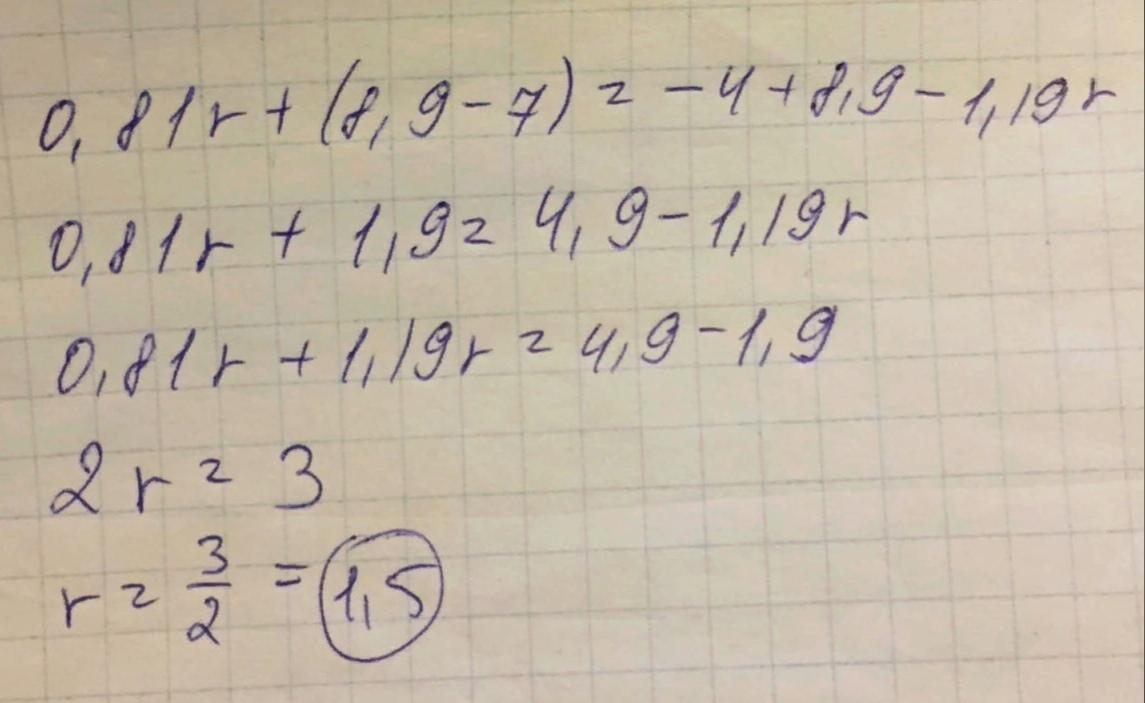 0,81r + (8,9 - 7) = -4 + 8,9 - 1,19r
0,81r + 1,9 = 4,9 - 1,19r
0,81r + 1,19r = 4,9 - 1,9
2r = 3
r = 3/2 = 1,5